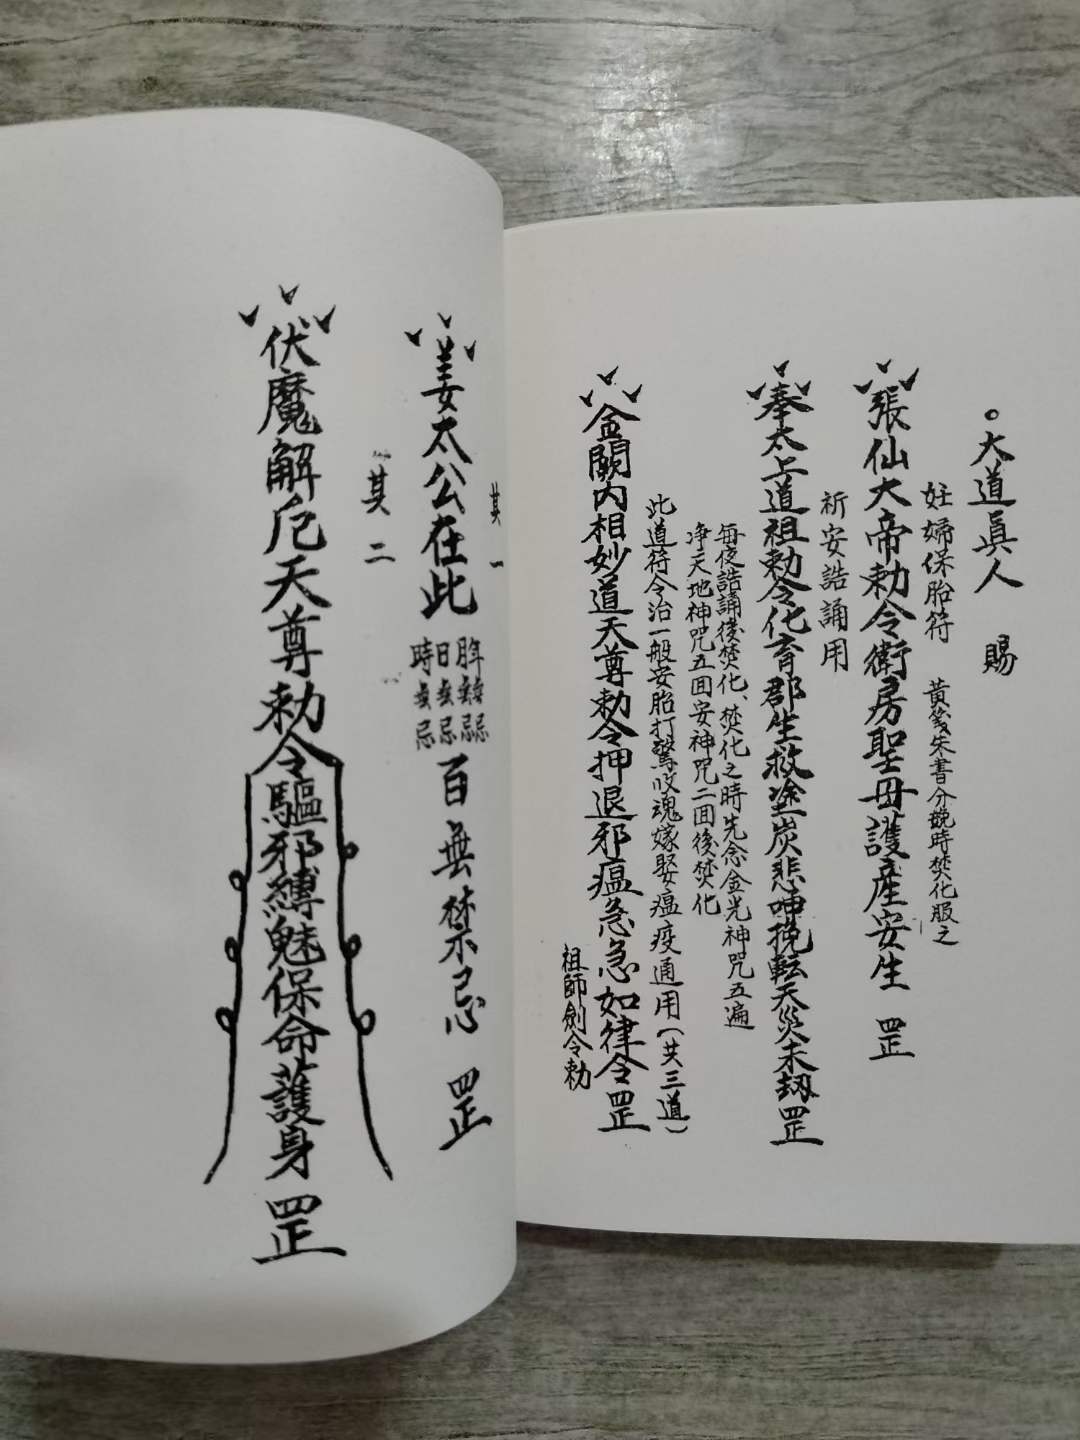 。大道眞人 賜
妊婦保胎符 黃箋朱書分娩時焚化服之
張仙大帝勅令衛房聖母護產安生 罡
祈安誥誦用
奉太上道祖勅令化育郡生救塗炭悲呻挽転天災未刼罡
每夜誥誦後焚化、焚化之時先念金光神咒五遍
净天地神咒五囬安神咒二囬後焚化
此道符令治一般安胎打驚收魂嫁娶瘟疫通用(共三道)
金闕内相妙道天尊勅令押退邪瘟急急如律令罡
祖師劍令勅
其一
姜太公在此 年無忌 日無忌 時無忌 百無禁忌 罡
其二
伏魔解厄天尊勅令驅邪縛魅保命護身 罡